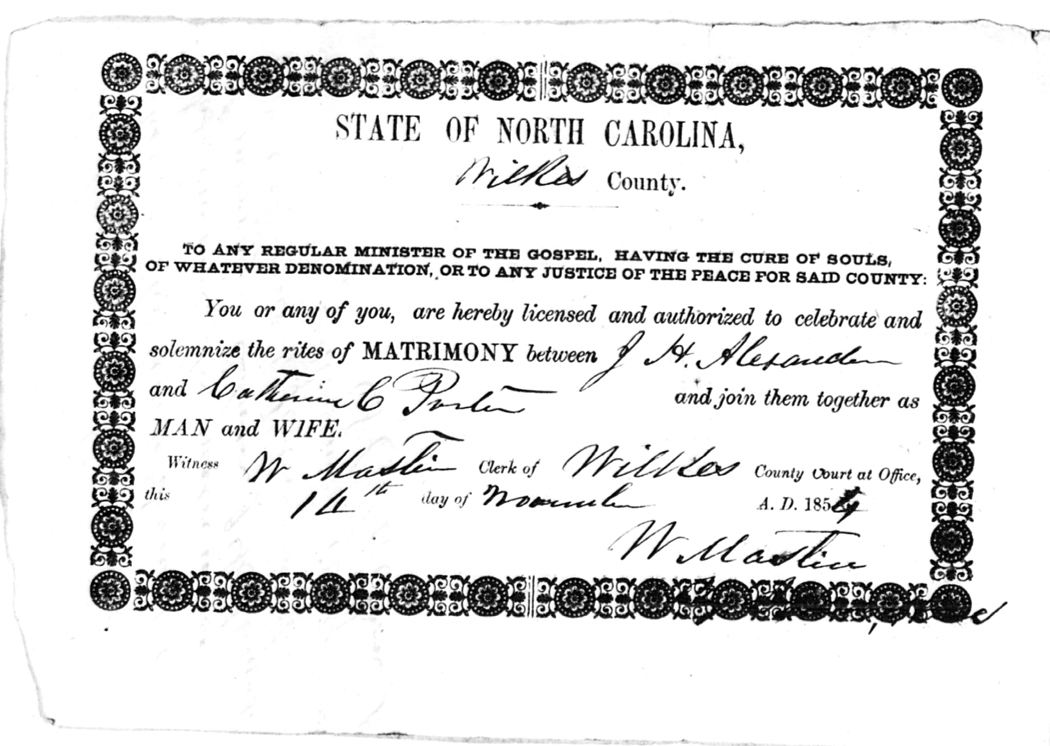 STATE OF NORTH CAROLINA,
Wilkes County.
TO ANY REGULAR MINISTER OF THE GOSPEL, HAVING THE CURE OF SOULS,
OF WHATEVER DENOMINATION, OR TO ANY JUSTICE OF THE PEACE FOR SAID COUNTY:
You or any of you, are hereby licensed and authorized to celebrate and
solemnize the rites of MATRIMONY between J H. Alexander
and Catherine C Porter and join them together as
MAN and WIFE.
Witness W Mastin Clerk of Wilkes County Court at Office,
this 14th day of November A. D. 185
W Mastin